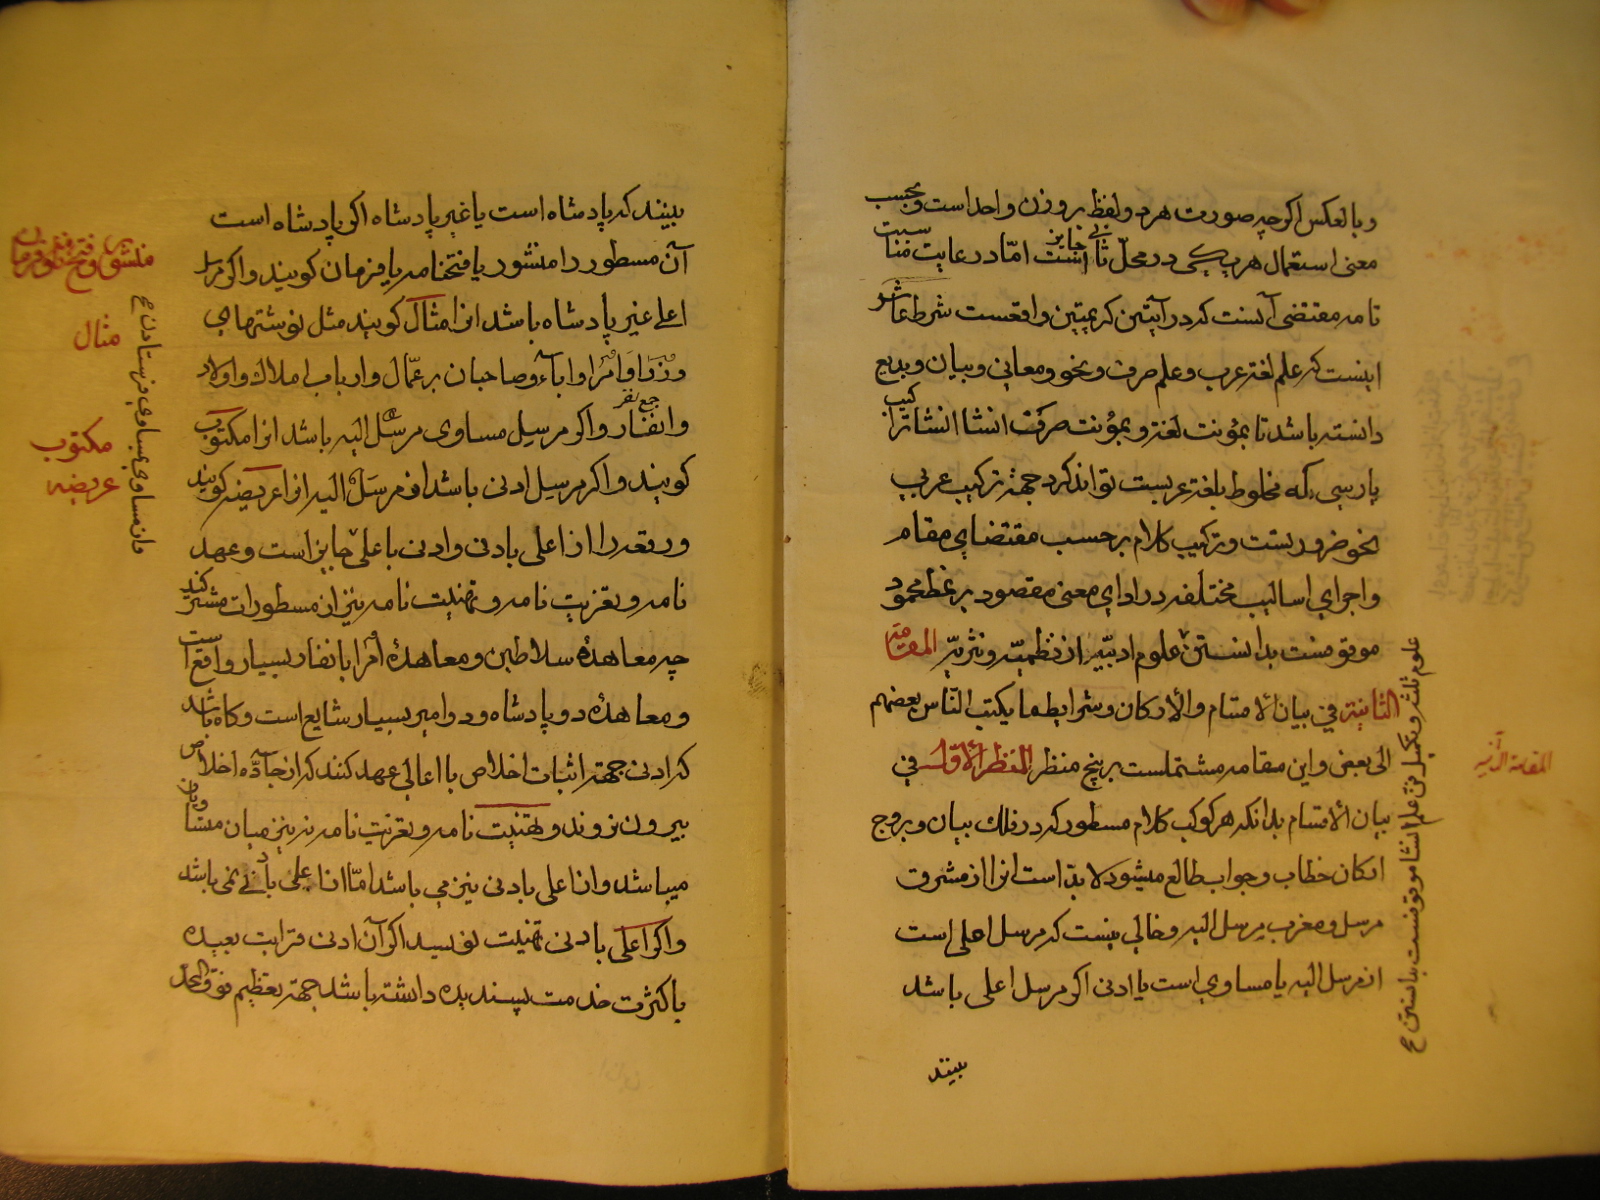 و بالعکس اگر چه صورت هر دو لفظ بر وزن واحد است و بحسب
معنی استعمال هر یکی در محلّ ثانی جایز است امّا در عایت مناسبت
تامه مقتضی آنست که در آیتین کریمتین واقعست شرط عاشر
اینست که علم لغة عرب و علم صرف و نحو و معانی و بیان و بدیع
دانسته باشد تا بمؤنت لغة و بمؤنت صرف انشا انشا تراکیب
پارسی که مخلوط بلغة عربست تواند کرد جهة ترکیب عربی
نحو ضروریست و ترکیب کلام بر حسب مقتضای مقام
و اجرای اسالیب مختلفه در ادای معنی مقصود بر نمط محمود
موقوفست بدانستن علوم ادبیّه از نظمیّه و نثریّه المقامة
الثانیة فی بیان الاقسام و الارکان و شرایط ما یکتب النّاس بعضهم
الی بعض و این مقامه مشتملست بر پنج منظر المنظر الاوّل فی
بیان الاقسام بدانکه هر کوکب کلام مسطور که در فلک بیان و بروج
ارکان خطاب و جواب طالع میشود لا بدّ است انرا از مشرق
مرسل و مغرب مرسل الیه و خالی نیست که مرسل اعلی است
از مرسل الیه یا مساوی است یا ادنی اگر مرسل اعلی باشد
بینند
علوم ثلثه و تکمیل فن علم انشا موقوفست بدانستن ح
المقامة الثانیه
بینند که پادشاه است یا غیر پادشاه اگر پادشاه است
آن مسطور را منشور یا فتحنامه یا فرمان کویند و اکر مرسل
اعلی غیر پادشاه باشد انرا مثال کویند مثل نوشتهای
وزرا و امرا و اباء و صاحبان بر عمّال و ارباب املاک و اولاد
جمع نفر
و انفار و اکر مرسل مساوی مرسل الیه باشد انرا مکتوب
کویند و اکر مرسل ادنی باشد از مرسل الیه انرا عریضه کویند
و رقعه را از اعلی بادنی و ادنی باعلی جایز است و عهد
نامه و تعزیت نامه و تهنیت نامه نیز از مسطورات مشترکند
چه معاهدهٔ سلاطین و معاهدهٔ امرا با نفار بسیار واقع است
و معاهده دو پادشاه و دو امیر بسیار شایع است و کاه باشد
که ادنی جهة اثبات اخلاص با اعالی عهد کنند که از جادّه اخلاص
بیرون نروند و تهنیت نامه و تعزیت نامه نیز میان مساویان
میباشد و از اعلی بادنی نیز می باشد امّا از اعلی بادنی نمی باشد
و اکر اعلی بادنی تهنیت نویسد اکر آن ادنی قرابت بعیده
یا کثرت خدمت پسندیده داشته باشد جهة تعظیم فوق الحد
منشور و فتحنامه و فرمان
مثال
مکتوب
عریضه
و از مساوی بمساوی فرستادن ح